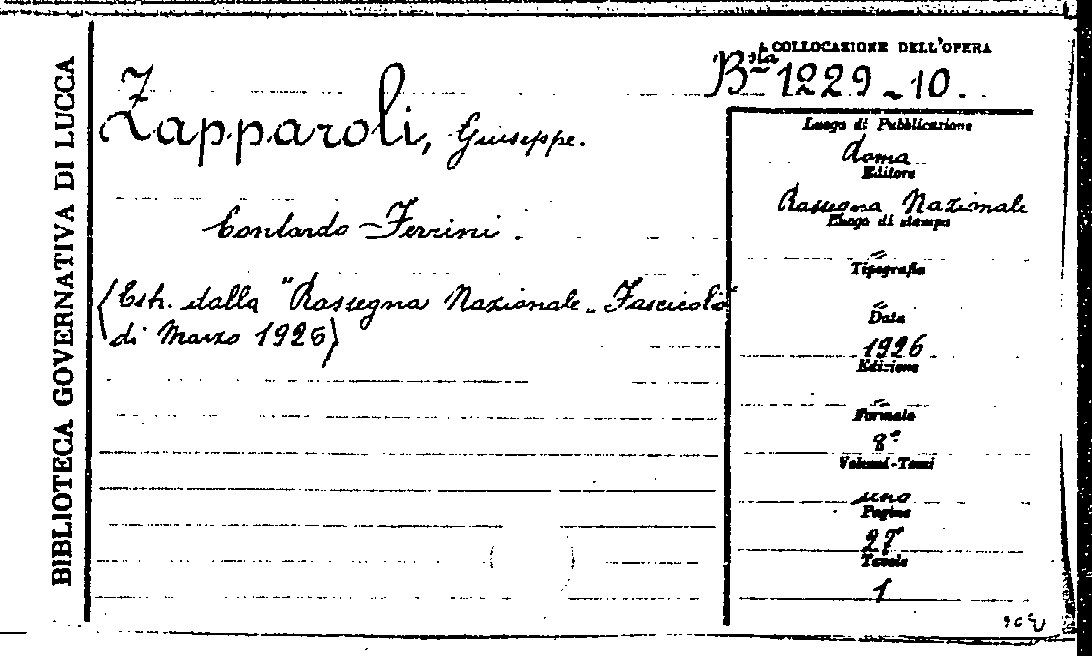 BIBLIOTECA GOVERNATIVA DI LUCCA
Zapparoli, Giuseppe.
Contardo Ferrini.
(Estr. dalla "Rassegna Nazionale„ Fascicolo
di Marzo 1926)
COLLOCAZIONE DELL'OPERA
Bta 1229-10.
Luogo di Pubblicazione
Roma
Editore
Rassegna Nazionale
Luogo di stampa
"
Tipografia
"
Data
1926
Edizione
"
Formato
8°
Volumi-Tomi
uno
Pagine
27
Tavole
1